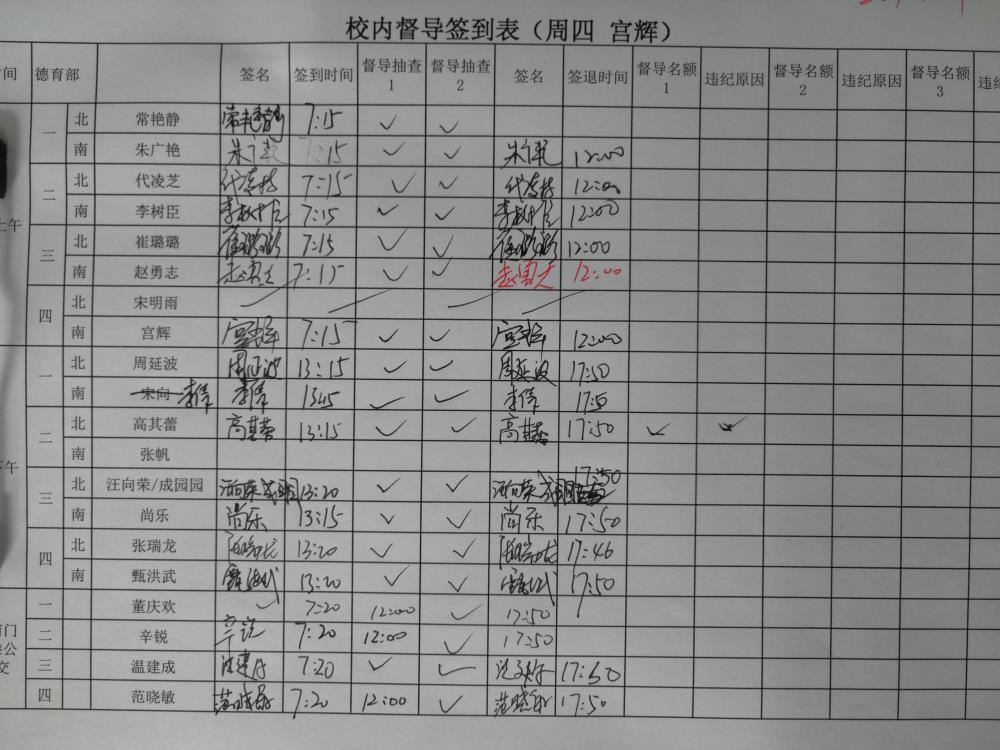 校内督导签到表（周四 宫辉）
时间 德育部 签名 签到时间 督导抽查1 督导抽查2 签名 签退时间 督导名额1 违纪原因 督导名额2 违纪原因 督导名额3 违纪
上午 一 北 常艳静 常艳静 7:15 ✓ ✓
南 朱广艳 朱广艳 7:15 ✓ ✓ 朱广艳 12:00
二 北 代凌芝 代凌芝 7:15 ✓ ✓ 代凌芝 12:00
南 李树臣 李树臣 7:15 ✓ ✓ 李树臣 12:00
三 北 崔璐璐 崔璐璐 7:15 ✓ ✓ 崔璐璐 12:00
南 赵勇志 赵勇志 7:15 ✓ ✓ 赵勇志 12:00
四 北 宋明雨
南 宫辉 宫辉 7:15 ✓ ✓ 宫辉 12:00
下午 一 北 周延波 周延波 13:15 ✓ ✓ 周延波 17:50
南 宋向 李倩 李倩 1315 ✓ ✓ 李倩 17:5
二 北 高其蕾 高其蕾 13:15 ✓ ✓ 高其蕾 17:50 ✓ ✓
南 张帆
三 北 汪向荣/成园园 汪向荣 成园园 13:20 ✓ ✓ 汪向荣 成园园 17:50
南 尚乐 尚乐 13:15 ✓ ✓ 尚乐 17:50
四 北 张瑞龙 张瑞龙 13:20 ✓ ✓ 张瑞龙 17:46
南 甄洪武 甄洪武 13:20 ✓ ✓ 甄洪武 17:50
门 公交 一 董庆欢 ✓ 7:20 12:00 ✓ 17:50
二 辛锐 辛锐 7:20 12:00 ✓ 17:50
三 温建成 温建成 7:20 ✓ ✓ 17:50
四 范晓敏 范晓敏 7:20 12:00 ✓ 范晓敏 17:50